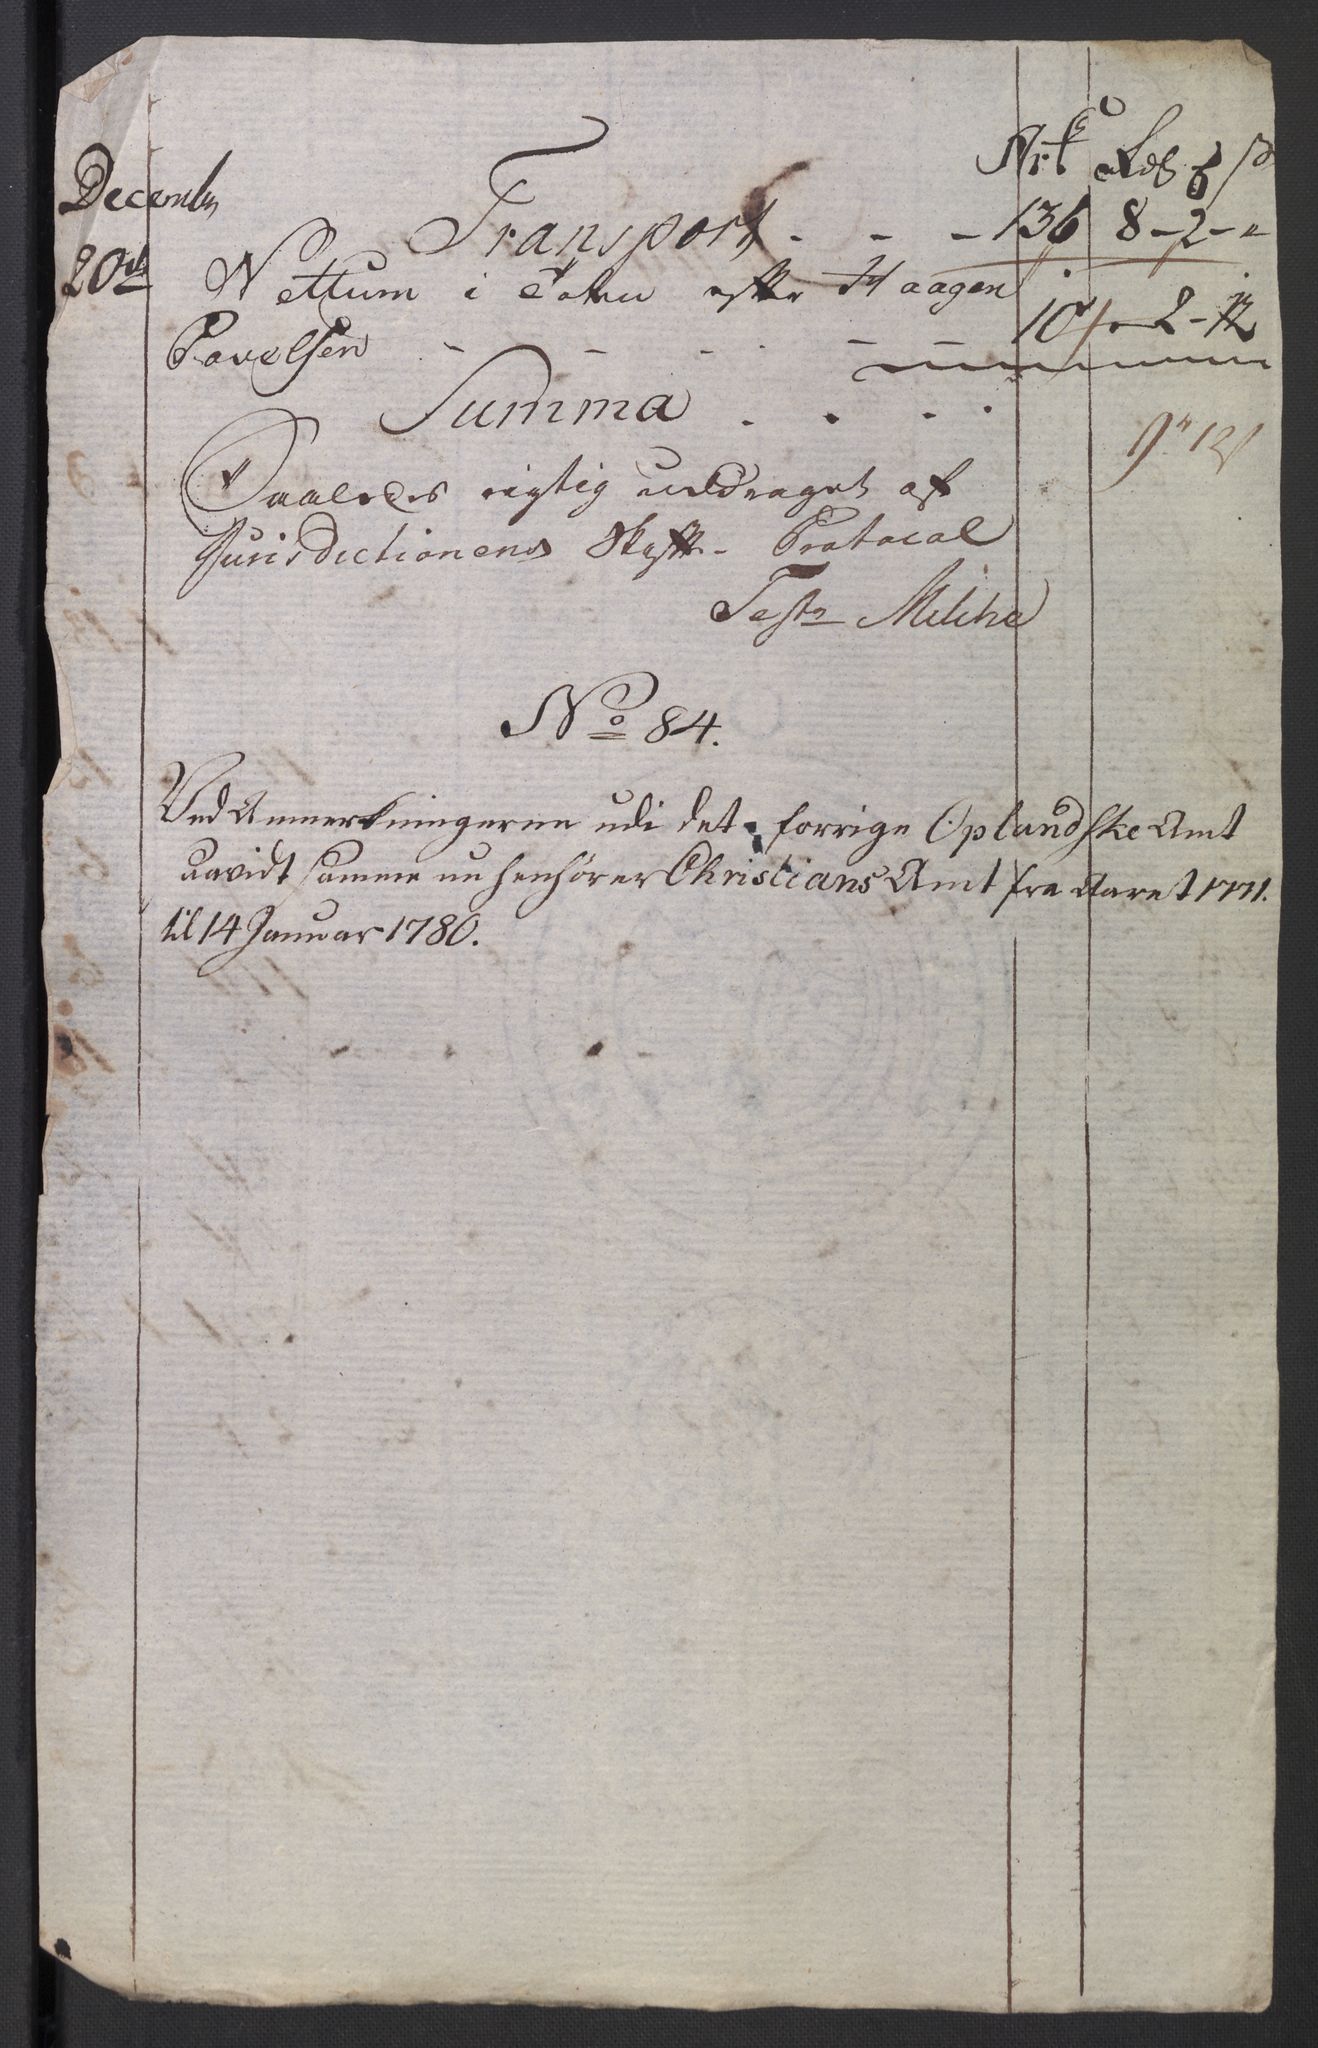 Decembr
Transport - - - 136 8 - 2 - "
20de Nettum i Toten efter Haagen
Povelsen - - - - - - 2 - 12
Summa . . . .
9" 12
Saaledes rigtig uddraget af
Jurisdictionens Skifte-Protocol
Test
No 84.
Ved Anmerkningerne udi det forrige Oplandske Amt
saavidt samme nu henhører Christians Amt fra Aaret 1771.
til 14 Januar 1780.